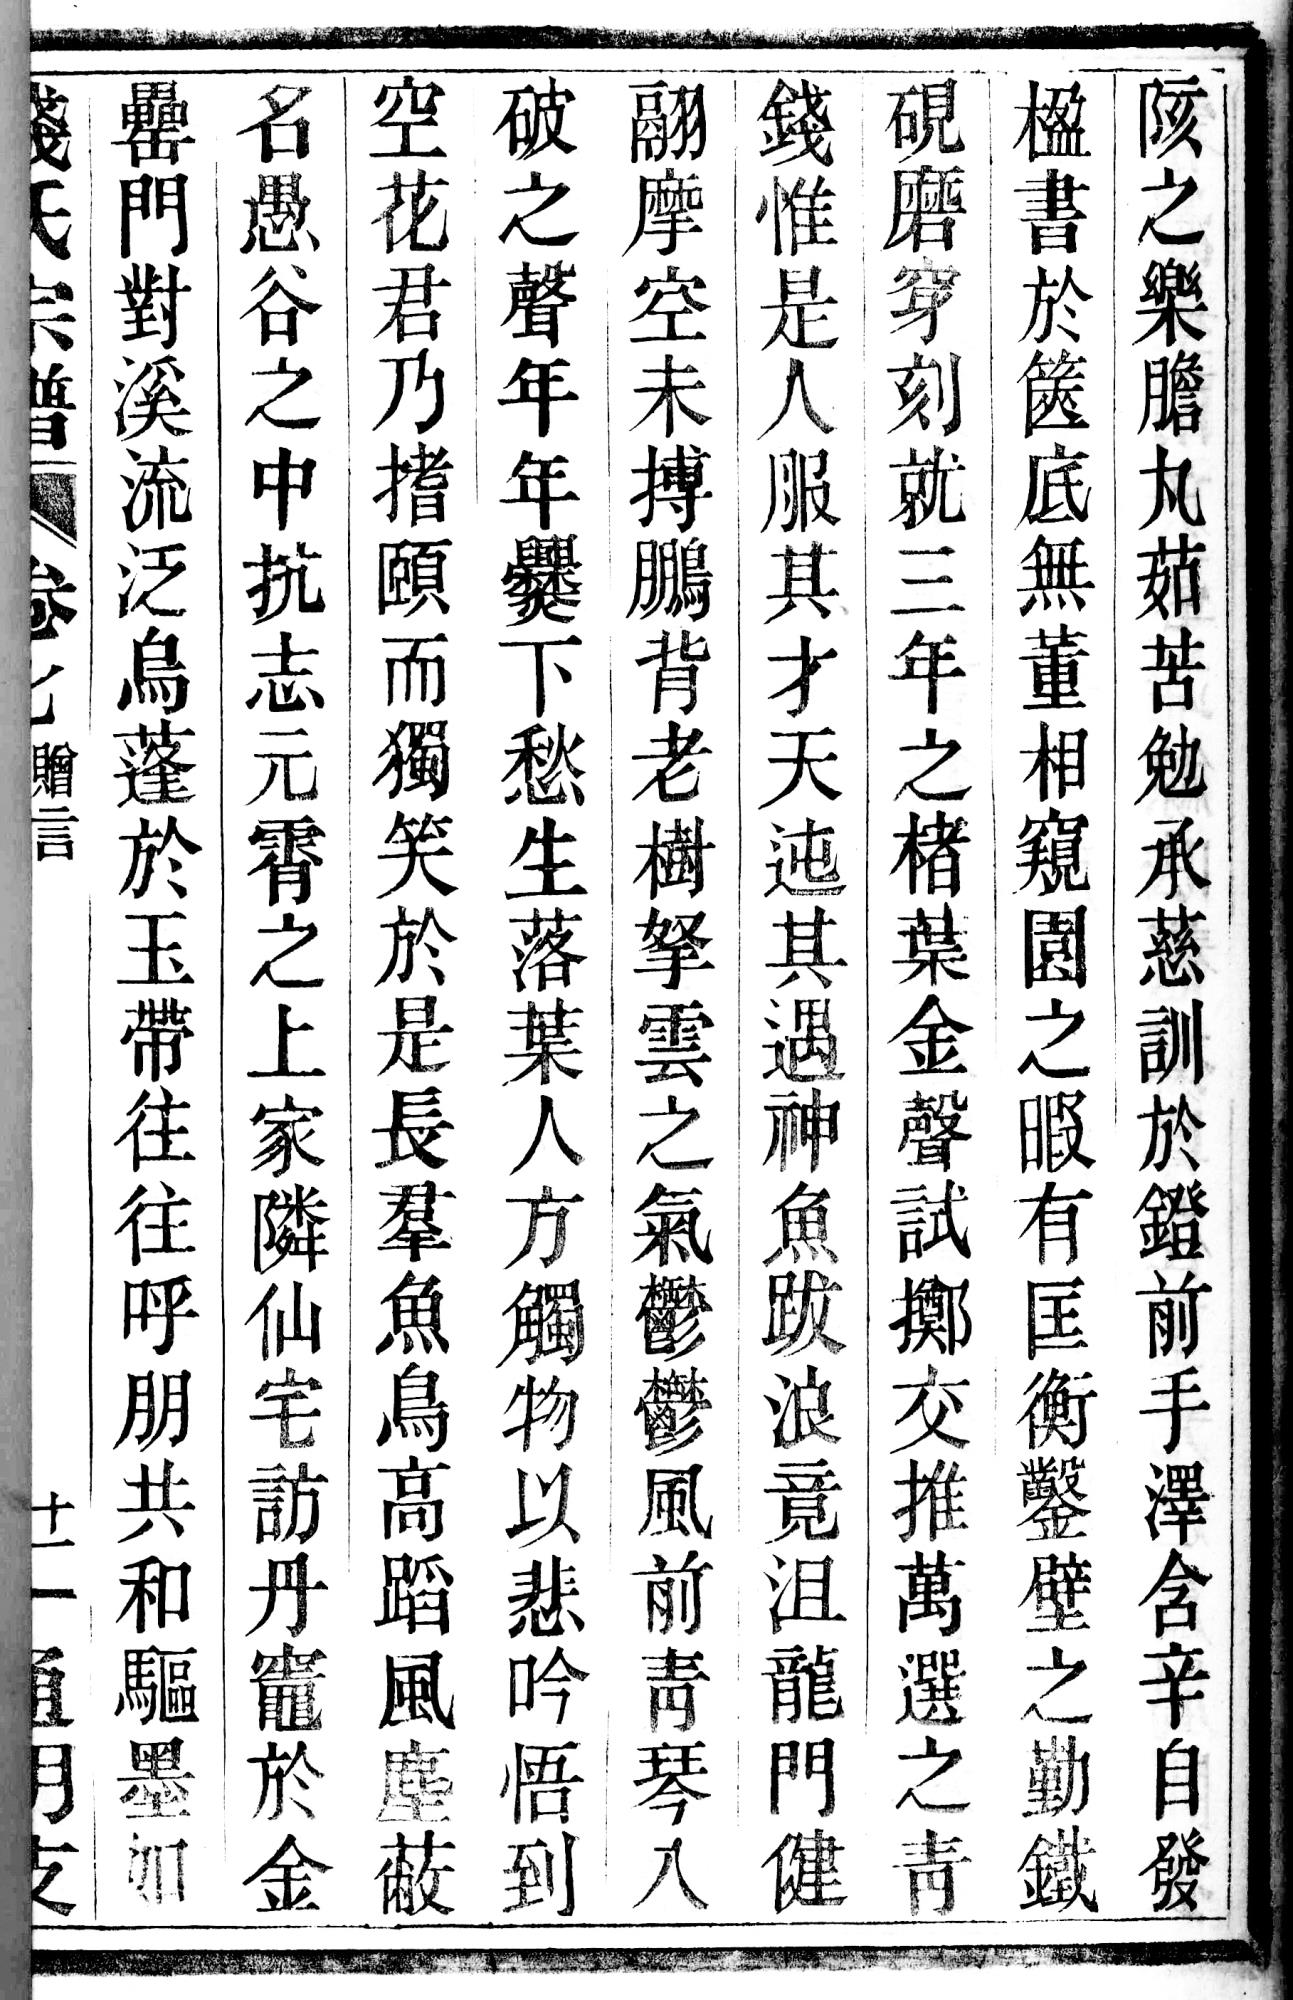 陔之樂膽丸茹苦勉承慈訓於鐙前手澤含辛自發
楹書於篋底無董相窺園之暇有匡衡鑿壁之勤鐵
硯磨穿刻就三年之楮葉金聲試擲交推萬選之青
錢惟是人服其才天迍其遇神魚跋浪竟沮龍門健
翮摩空未摶鵬背老樹拏雲之氣鬱鬱風前青琴入
破之聲年年爨下愁生落葉人方觸物以悲吟悟到
空花君乃搘頤而獨笑於是長羣魚鳥高蹈風塵蔽
名愚谷之中抗志元霄之上家隣仙宅訪丹竈於金
罍門對溪流泛烏蓬於玉帶往往呼朋共和驅墨如
錢氏宗譜 卷七 贈言 十一 通明支